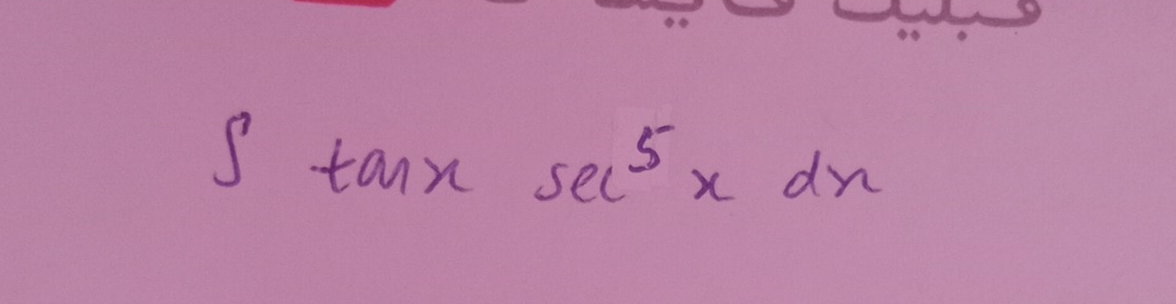 ∫ tanx sec⁵ x dx